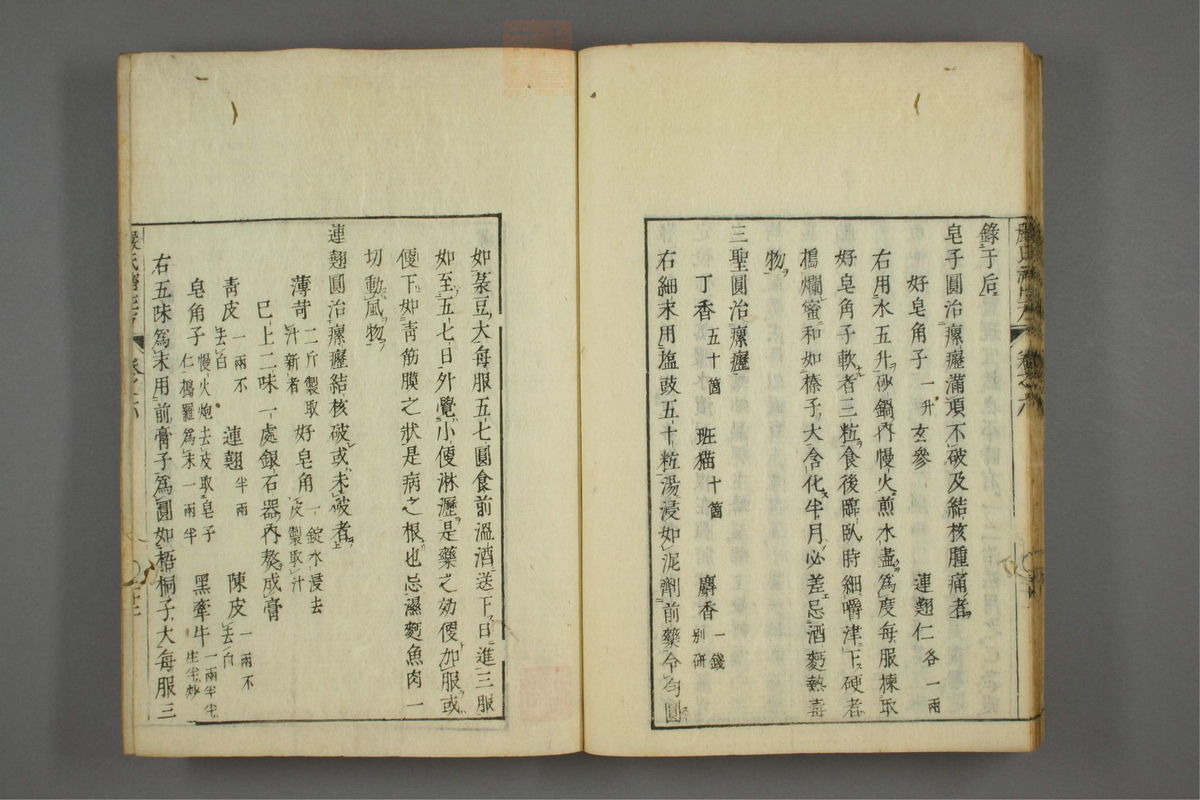 錄于后
皂子圓治瘰癧滿項不破及結核腫痛者
好皂角子一升 玄參 連翹仁各一兩
右用水五升砂鍋內慢火煎水盡爲度每服揀取
好皂角子軟者三粒食後臨臥時細嚼津下硬者
搗爛蜜和如榛子大含化半月必差忌酒麪熱毒
物
三聖圓治瘰癧
丁香五十箇 班猫十箇 麝香一錢別研
右細末用塩豉五十粒湯浸如泥劑前藥令勻圓
如菉豆大每服五七圓食前溫酒送下日進三服
如至五七日外覺小便淋瀝是藥之効便加服或
便下如青筋膜之狀是病之根也忌濕麪魚肉一
切動風物
連翹圓治瘰癧結核破或未破者
薄苛二斤製取汁新者 好皂角一錠水浸去皮製取汁
已上二味一處銀石器內熬成膏
青皮一兩不去白 連翹半兩 陳皮一兩不去白
皂角子慢火炮去皮取皂子仁搗羅爲末一兩半 黑牽牛一兩半半生半炒
右五味爲末用前膏子爲圓如梧桐子大每服三
卷之六